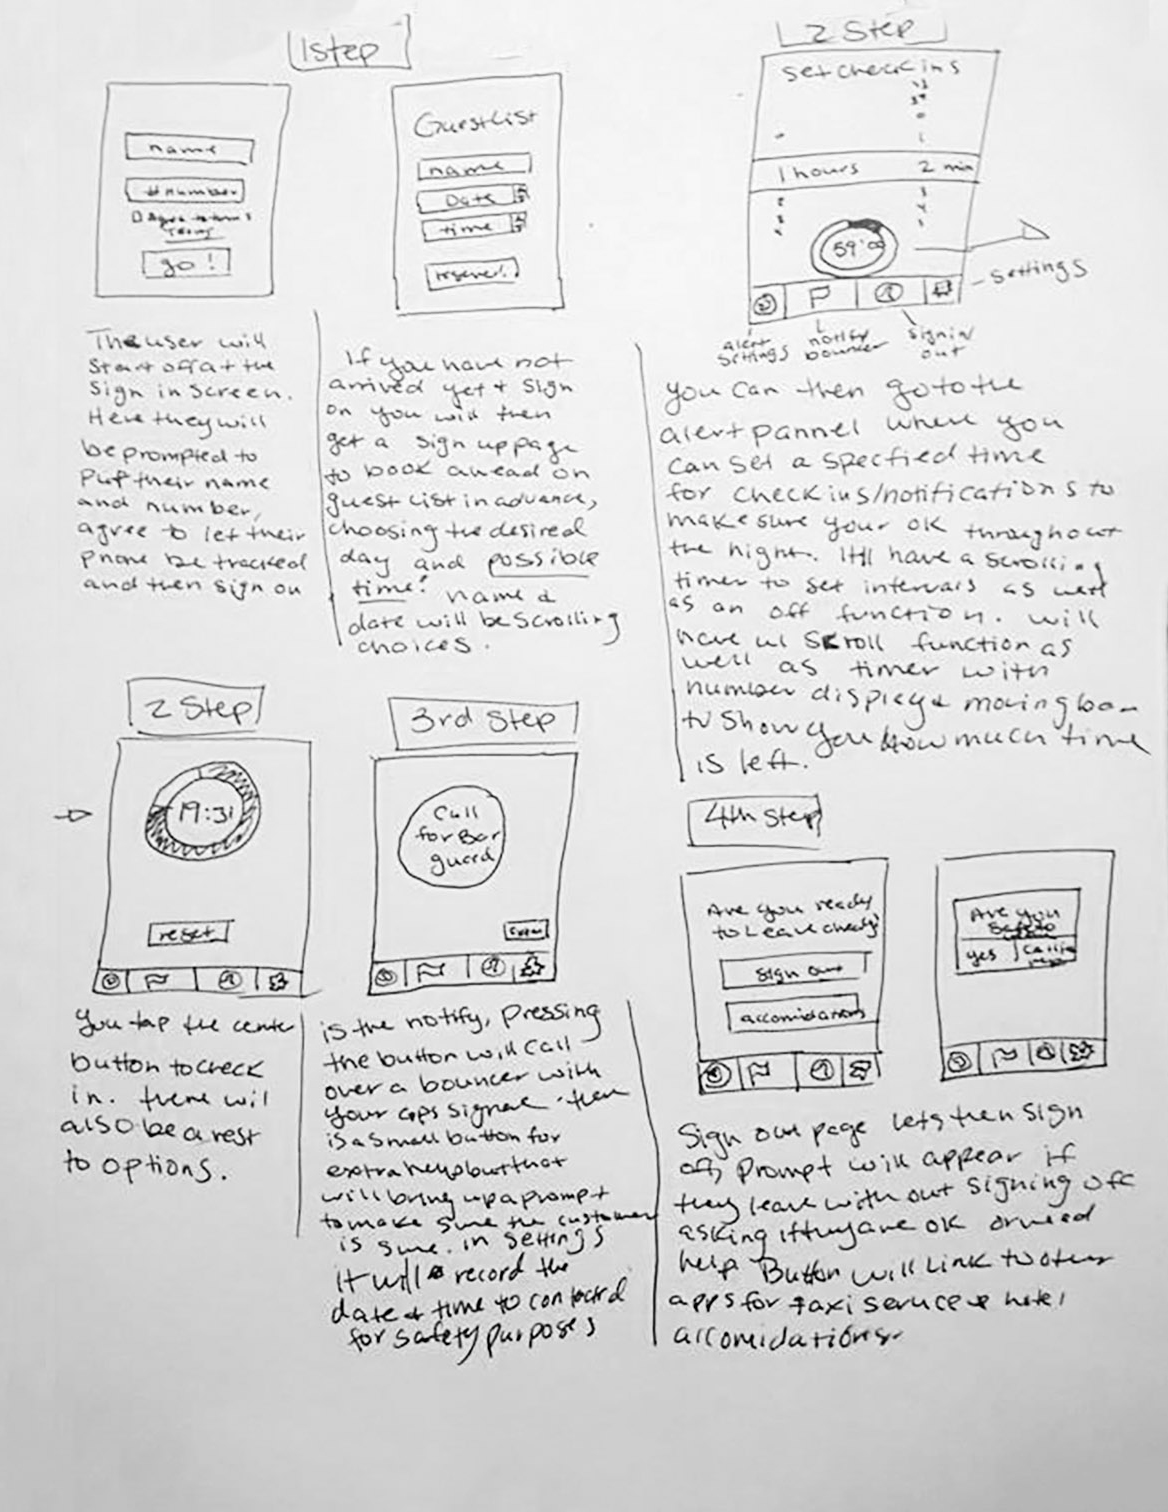 1step
name
# number
Agree to terms
go!
The user will
start off at the
sign in screen.
Here they will
be prompted to
put their name
and number,
agree to let their
phone be tracked
and then sign on
Guestlist
name
Date
time
reserve!
If you have not
arrived yet + sign
on you will then
get a sign up page
to book ahead on
guest list in advance,
choosing the desired
day and possible
time! name &
date will be scrolling
choices.
2 Step
set check ins
1 hours 2 min
59:00
settings
alert
settings
notify
bouncer
sign in
out
you can then go to the
alert pannel where you
can set a specfied time
for check ins/notifications to
make sure your ok throughout
the night. It'll have a scrolling
timer to set intervals as well
as an off function. will
have ul scroll function as
well as timer with
number display & moving bar
to show you how much time
is left.
2 Step
19:31
reset
You tap the center
button to check
in. there will
also be a rest
to options.
3rd Step
Call
for Bar
guard
is the notify, pressing
the button will call
over a bouncer with
your gps signal. there
is a small button for
extra help but that
will bring up a prompt
to make sure the customer
is sure. in settings
it will record the
date & time to contactd
for safety purposes
4th Step
Are you ready
to Leave
sign out
accomidations
Are you
safe to
yes
Sign out page lets then sign
off, prompt will appear if
they leave with out signing off
asking if they are ok or need
help Button will link to other
apps for taxi service & hotel
accomidations.